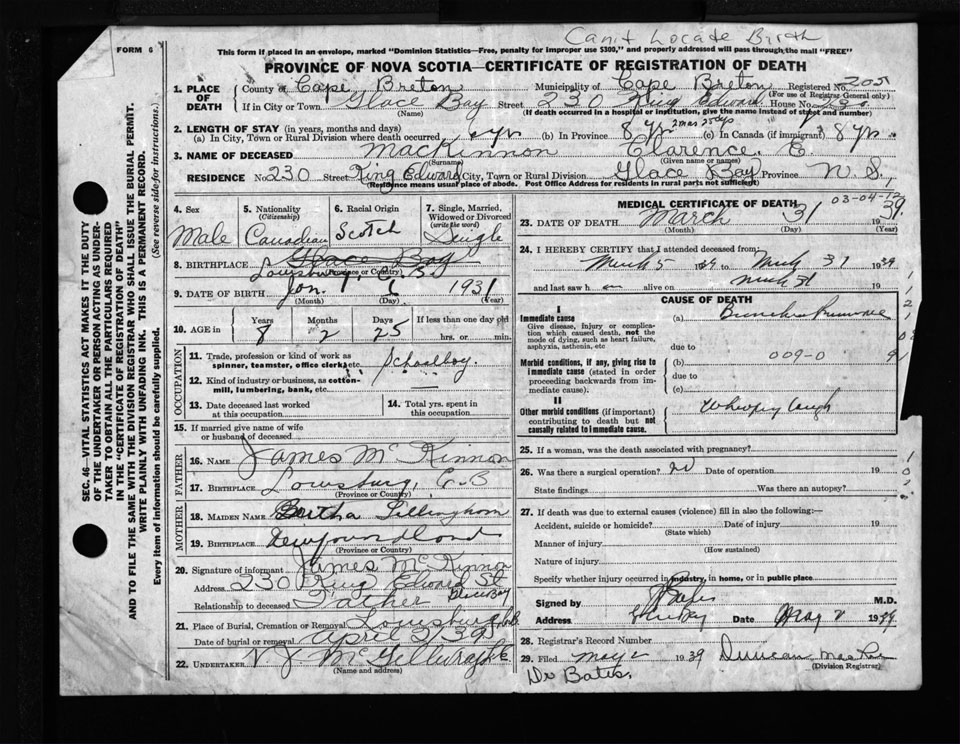 Can't Locate Birth
FORM 6
This form if placed in an envelope, marked "Dominion Statistics—Free, penalty for improper use $300," and properly addressed will pass through the mail "FREE"
PROVINCE OF NOVA SCOTIA—CERTIFICATE OF REGISTRATION OF DEATH
1. PLACE OF DEATH
County of Cape Breton Municipality of Cape Breton Registered No. 205
(For use of Registrar General only)
If in City or Town Glace Bay Street 230 King Edward House No. 230
(Name) (If death occurred in a hospital or institution, give the name instead of street and number)
2. LENGTH OF STAY (in years, months and days)
(a) In City, Town or Rural Division where death occurred yrs (b) In Province 8 yrs 2 mos 25 dys (c) In Canada (if immigrant) 8 yrs
3. NAME OF DECEASED MacKinnon Clarence. E.
(Surname) (Given name or names)
RESIDENCE No. 230 Street King Edward City, Town or Rural Division Glace Bay Province N.S.
(Residence means usual place of abode. Post Office Address for residents in rural parts not sufficient)
4. Sex Male
5. Nationality (Citizenship) Canadian
6. Racial Origin Scotch
7. Single, Married, Widowed or Divorced (write the word) Single
8. BIRTHPLACE Glace Bay
Louisburg C.B.
(Province or Country)
9. DATE OF BIRTH Jan. 6 1931
(Month) (Day) (Year)
10. AGE in Years 8 Months 2 Days 25 If less than one day old hrs. or min.
OCCUPATION
11. Trade, profession or kind of work as spinner, teamster, office clerk, etc. Schoolboy.
12. Kind of industry or business, as cotton-mill, lumbering, bank, etc.
13. Date deceased last worked at this occupation
14. Total yrs. spent in this occupation
15. If married give name of wife or husband of deceased
FATHER
16. NAME James McKinnon
17. BIRTHPLACE Louisburg, C.B
(Province or Country)
MOTHER
18. MAIDEN NAME Bertha
19. BIRTHPLACE Newfoundland
(Province or Country)
20. Signature of informant James McKinnon
Address 230 King Edward St Glace Bay
Relationship to deceased Father
21. Place of Burial, Cremation or Removal Louisburg
Date of burial or removal April 2/39
22. UNDERTAKER V. J. McGillivray
(Name and address)
MEDICAL CERTIFICATE OF DEATH
03-04-12
23. DATE OF DEATH March 31 1939.
(Month) (Day) (Year)
24. I HEREBY CERTIFY that I attended deceased from
March 5 1939 to March 31 1939
and last saw h im alive on March 31 19
CAUSE OF DEATH
I
Immediate cause
Give disease, injury or complication which caused death, not the mode of dying, such as heart failure, asphyxia, asthenia, etc
(a) Broncho Pneumonia
due to
Morbid conditions, if any, giving rise to immediate cause (stated in order proceeding backwards from immediate cause).
(b) 009-0 9
due to
(c)
II
Other morbid conditions (if important) contributing to death but not causally related to immediate cause.
Whooping Cough
25. If a woman, was the death associated with pregnancy?
26. Was there a surgical operation? no Date of operation 19
State findings Was there an autopsy?
27. If death was due to external causes (violence) fill in also the following:—
Accident, suicide or homicide? Date of injury 19
(State which)
Manner of injury
(How sustained)
Nature of injury
Specify whether injury occurred in industry, in home, or in public place
Signed by Bates M.D.
Address Glace Bay Date May 2 1939
28. Registrar's Record Number
29. Filed May 2 1939 Duncan
(Division Registrar)
Dr Bates.
SEC. 46—VITAL STATISTICS ACT MAKES IT THE DUTY
OF THE UNDERTAKER OR PERSON ACTING AS UNDER-
TAKER TO OBTAIN ALL THE PARTICULARS REQUIRED
IN THE "CERTIFICATE OF REGISTRATION OF DEATH"
AND TO FILE THE SAME WITH THE DIVISION REGISTRAR WHO SHALL ISSUE THE BURIAL PERMIT.
WRITE PLAINLY WITH UNFADING INK. THIS IS A PERMANENT RECORD.
Every item of information should be carefully supplied.
(See reverse side for instructions.)